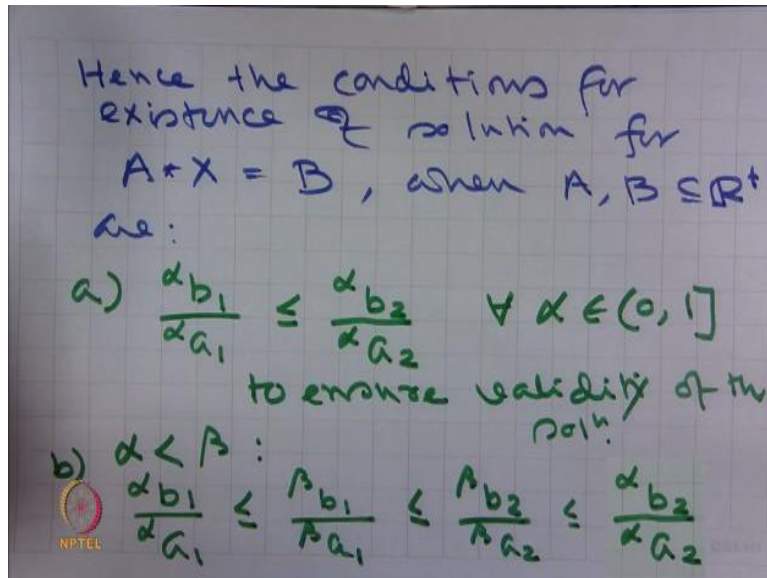 Hence the conditions for
existence of solution for
A * X = B, when A, B ⊆ R⁺
are:
a) ᵅb₁/ᵅa₁ ≤ ᵅb₂/ᵅa₂ ∀ α ∈ (0, 1]
to ensure validity of the
solⁿ.
b) α < β :
ᵅb₁/ᵅa₁ ≤ ᵝb₁/ᵝa₁ ≤ ᵝb₂/ᵝa₂ ≤ ᵅb₂/ᵅa₂
NPTEL